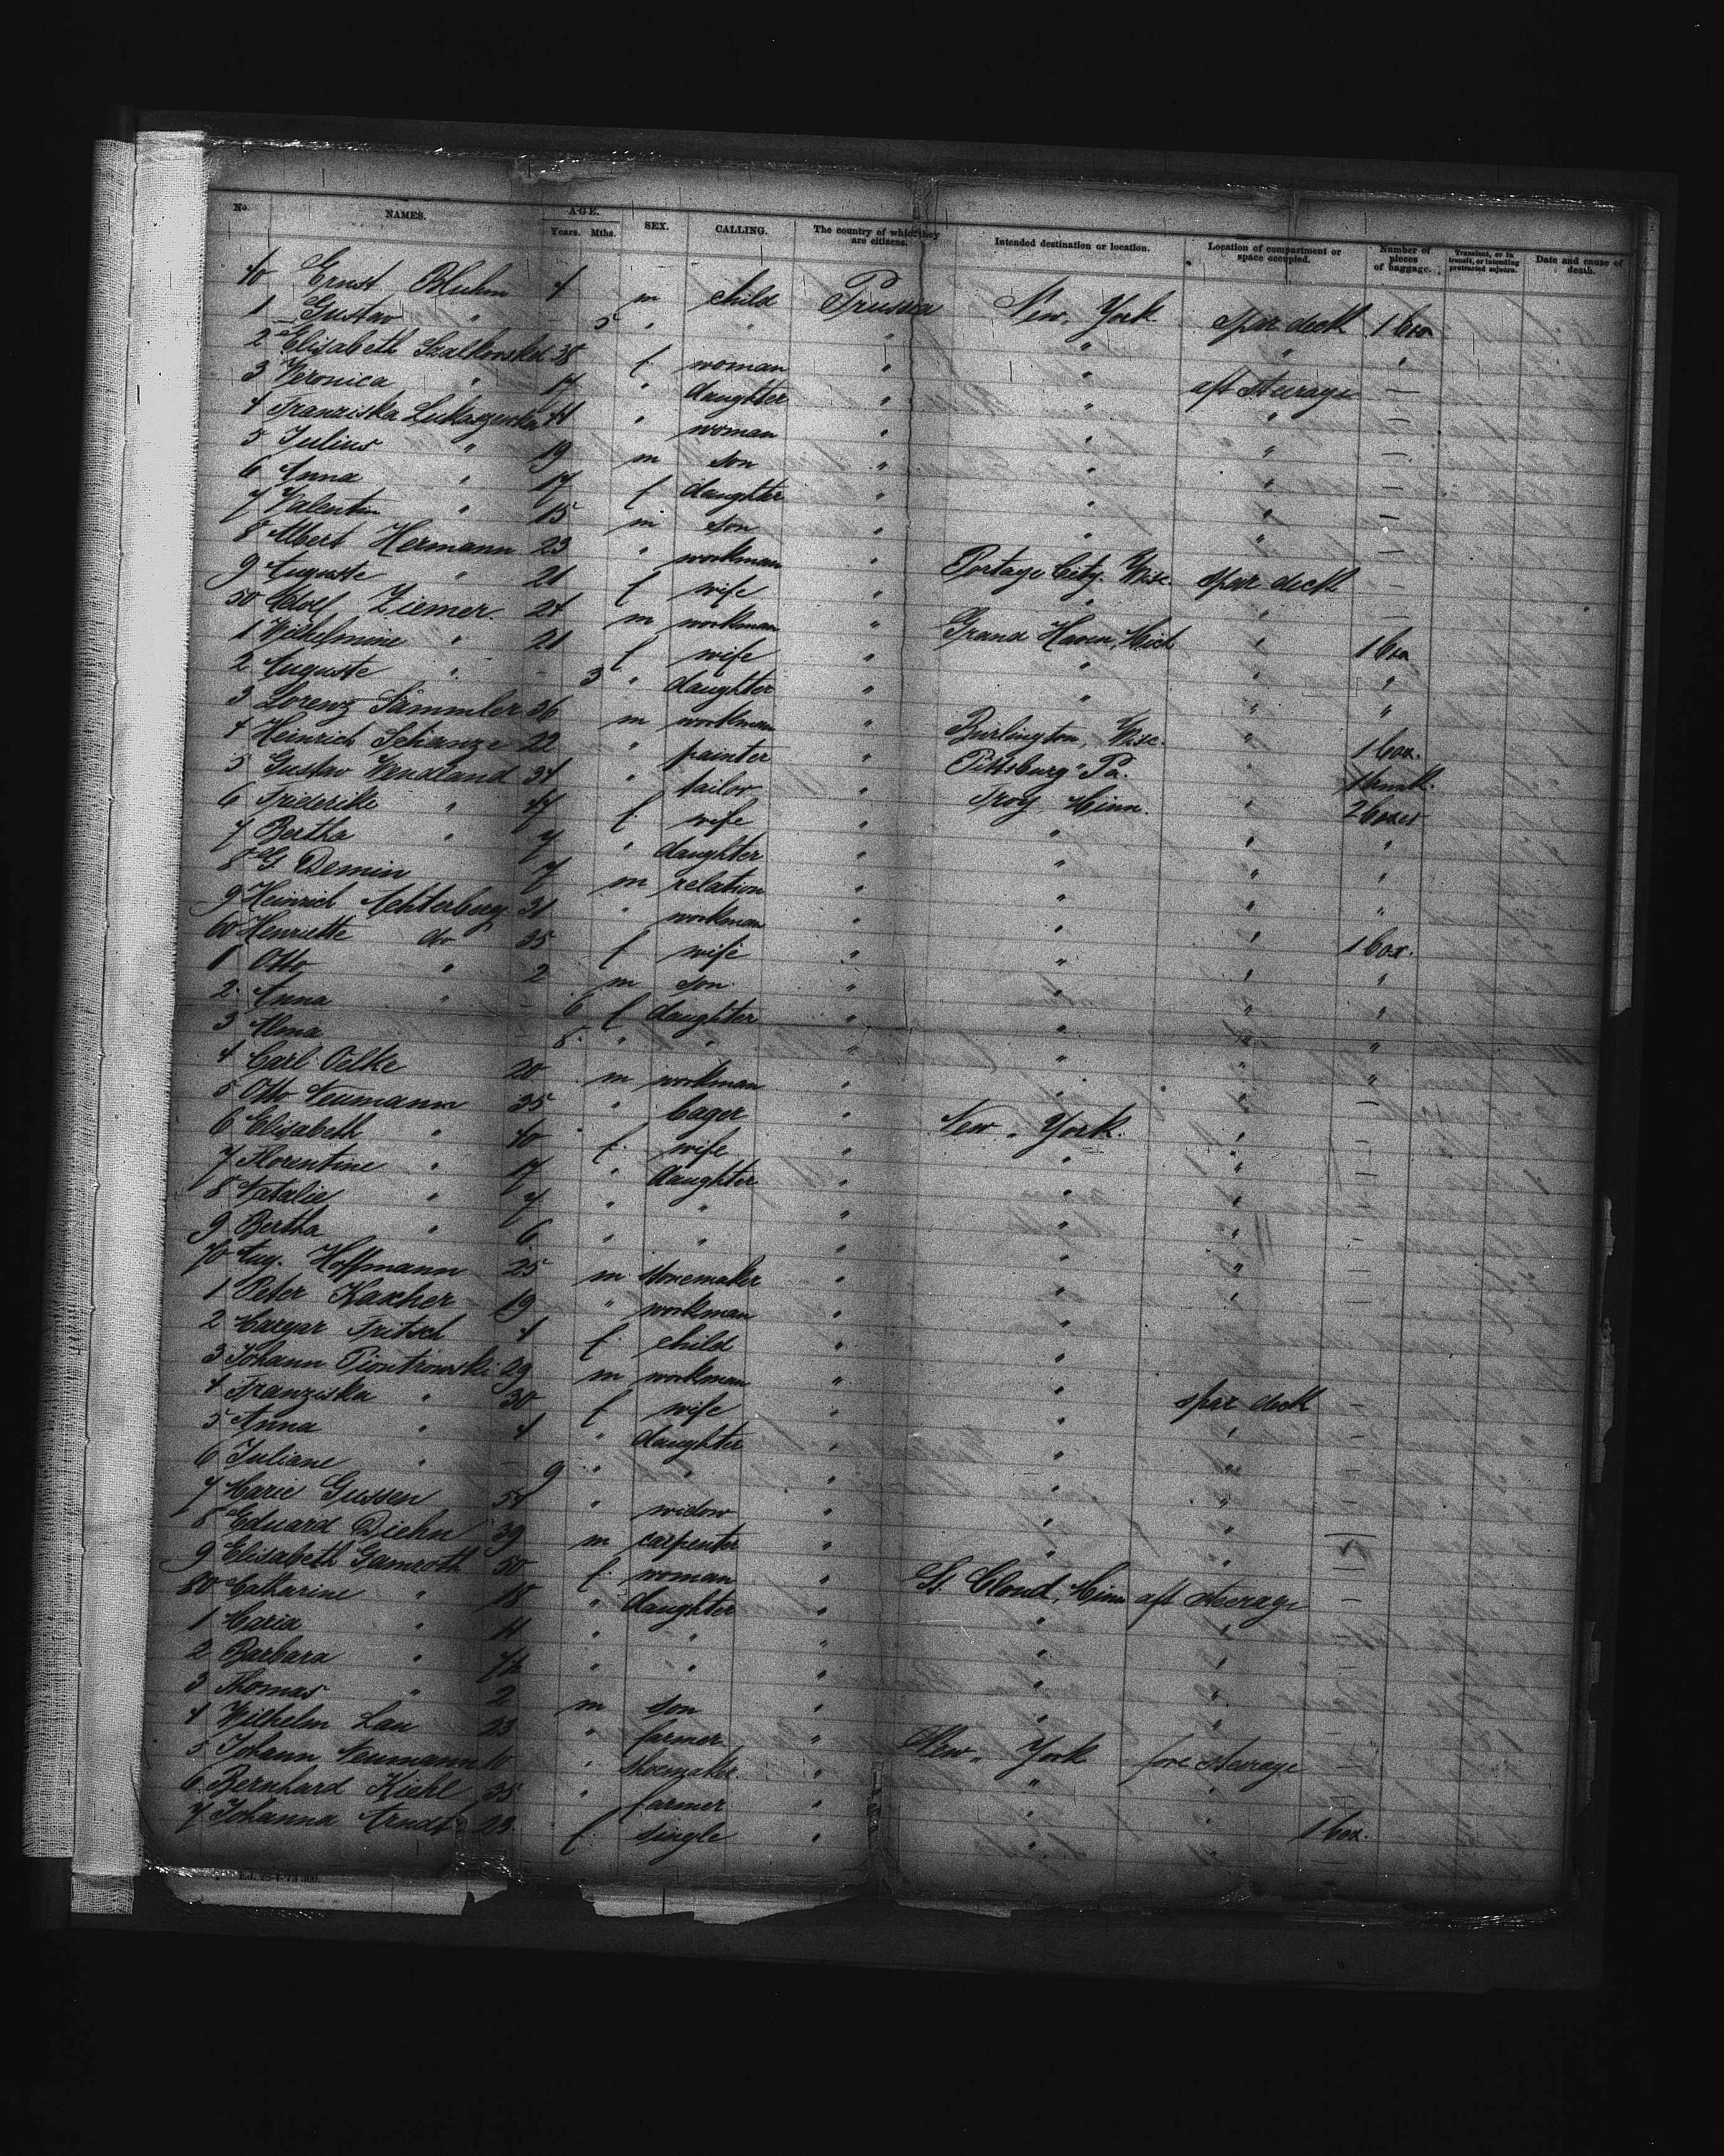 No. NAMES. AGE. Years. Mths. SEX. CALLING. The country of which they are citizens. Intended destination or location. Location of compartment or space occupied. Number of pieces of baggage. Transient, or in transit, or intending protracted sojourn. Date and cause of death.
40 Ernst Bluhm 4 m child Prussia New York spar deck 1 box
1 Gustav " - 5 " " " " " "
2 Elisabeth 38 f. woman " " aft steerage —
3 Veronica " 17 " daughter " " " —
4 Franziska 44 " woman " " " —
5 Julius " 19 m son " " " —
6 Anna " 17 f daughter " " " —
7 Valentin " 15 m son " " " —
8 Albert Hermann 23 " workman " Portage City. Wisc. spar deck —
9 Auguste " 21 f wife " " " —
50 Adolf Ziemer. 24 m workman " Grand Haven, Mich " 1 box
1 Wilhelmine " 21 f wife " " " "
2 Auguste " - 3 " daughter " " " "
3 Lorenz Sämmler 26 m workman " Burlington, Wisc. " 1 box.
4 Heinrich Schanze 22 " painter " Pittsburg Pa. "
5 Gustav Wendland 34 " tailor " Troy Minn. " 2 boxes
6 Friderike " f. wife " " " "
7 Bertha " 7 " daughter " " " "
8 G Demin 7 m relation " " " "
9 Heinrich Achterberg 31 " workman " " " 1 box.
60 Henriette do 35 f wife " " " "
1 Otto " 2 m son " " " "
2 Anna " - 6 f daughter " " " "
3 " " " " " "
4 Carl Oelke 20 m workman " " " —
5 Otto Neumann 35 " " New York. " —
6 Elisabeth " 40 f. wife " " " —
7 Florentine " 17 " daughter " " " —
8 Natalie " 7 " " " " " —
9 Bertha " 6 " " " " " —
70 Aug. Hoffmann 25 m " " "
1 Peter 19 " workman " "
2 Fritsch 4 f. child " "
3 Johann Piontrowski 29 m workman " " spar deck —
4 Franziska " 30 f wife " " " —
5 Anna " 4 " daughter " " " —
6 Juliane " - 9 " " " " " —
7 Marie Gussen 54 " widow " " " —
8 Eduard Diehn 39 m carpenter " " " —
9 Elisabeth Gamroth 50 f. woman " St. Cloud, Minn aft steerage —
80 Catharine " 18 " daughter " " " —
1 Maria " 11 " " " " " —
2 Barbara " " " " " " —
3 Thomas " 2 m son " " " —
4 Wilhelm Lau 23 " farmer " New York fore steerage —
5 Johann Neumann " shoemaker. " " "
6 Bernhard Kiehl 35 " farmer " " " 1 box.
7 Johanna Arndt 23 f. single " " "